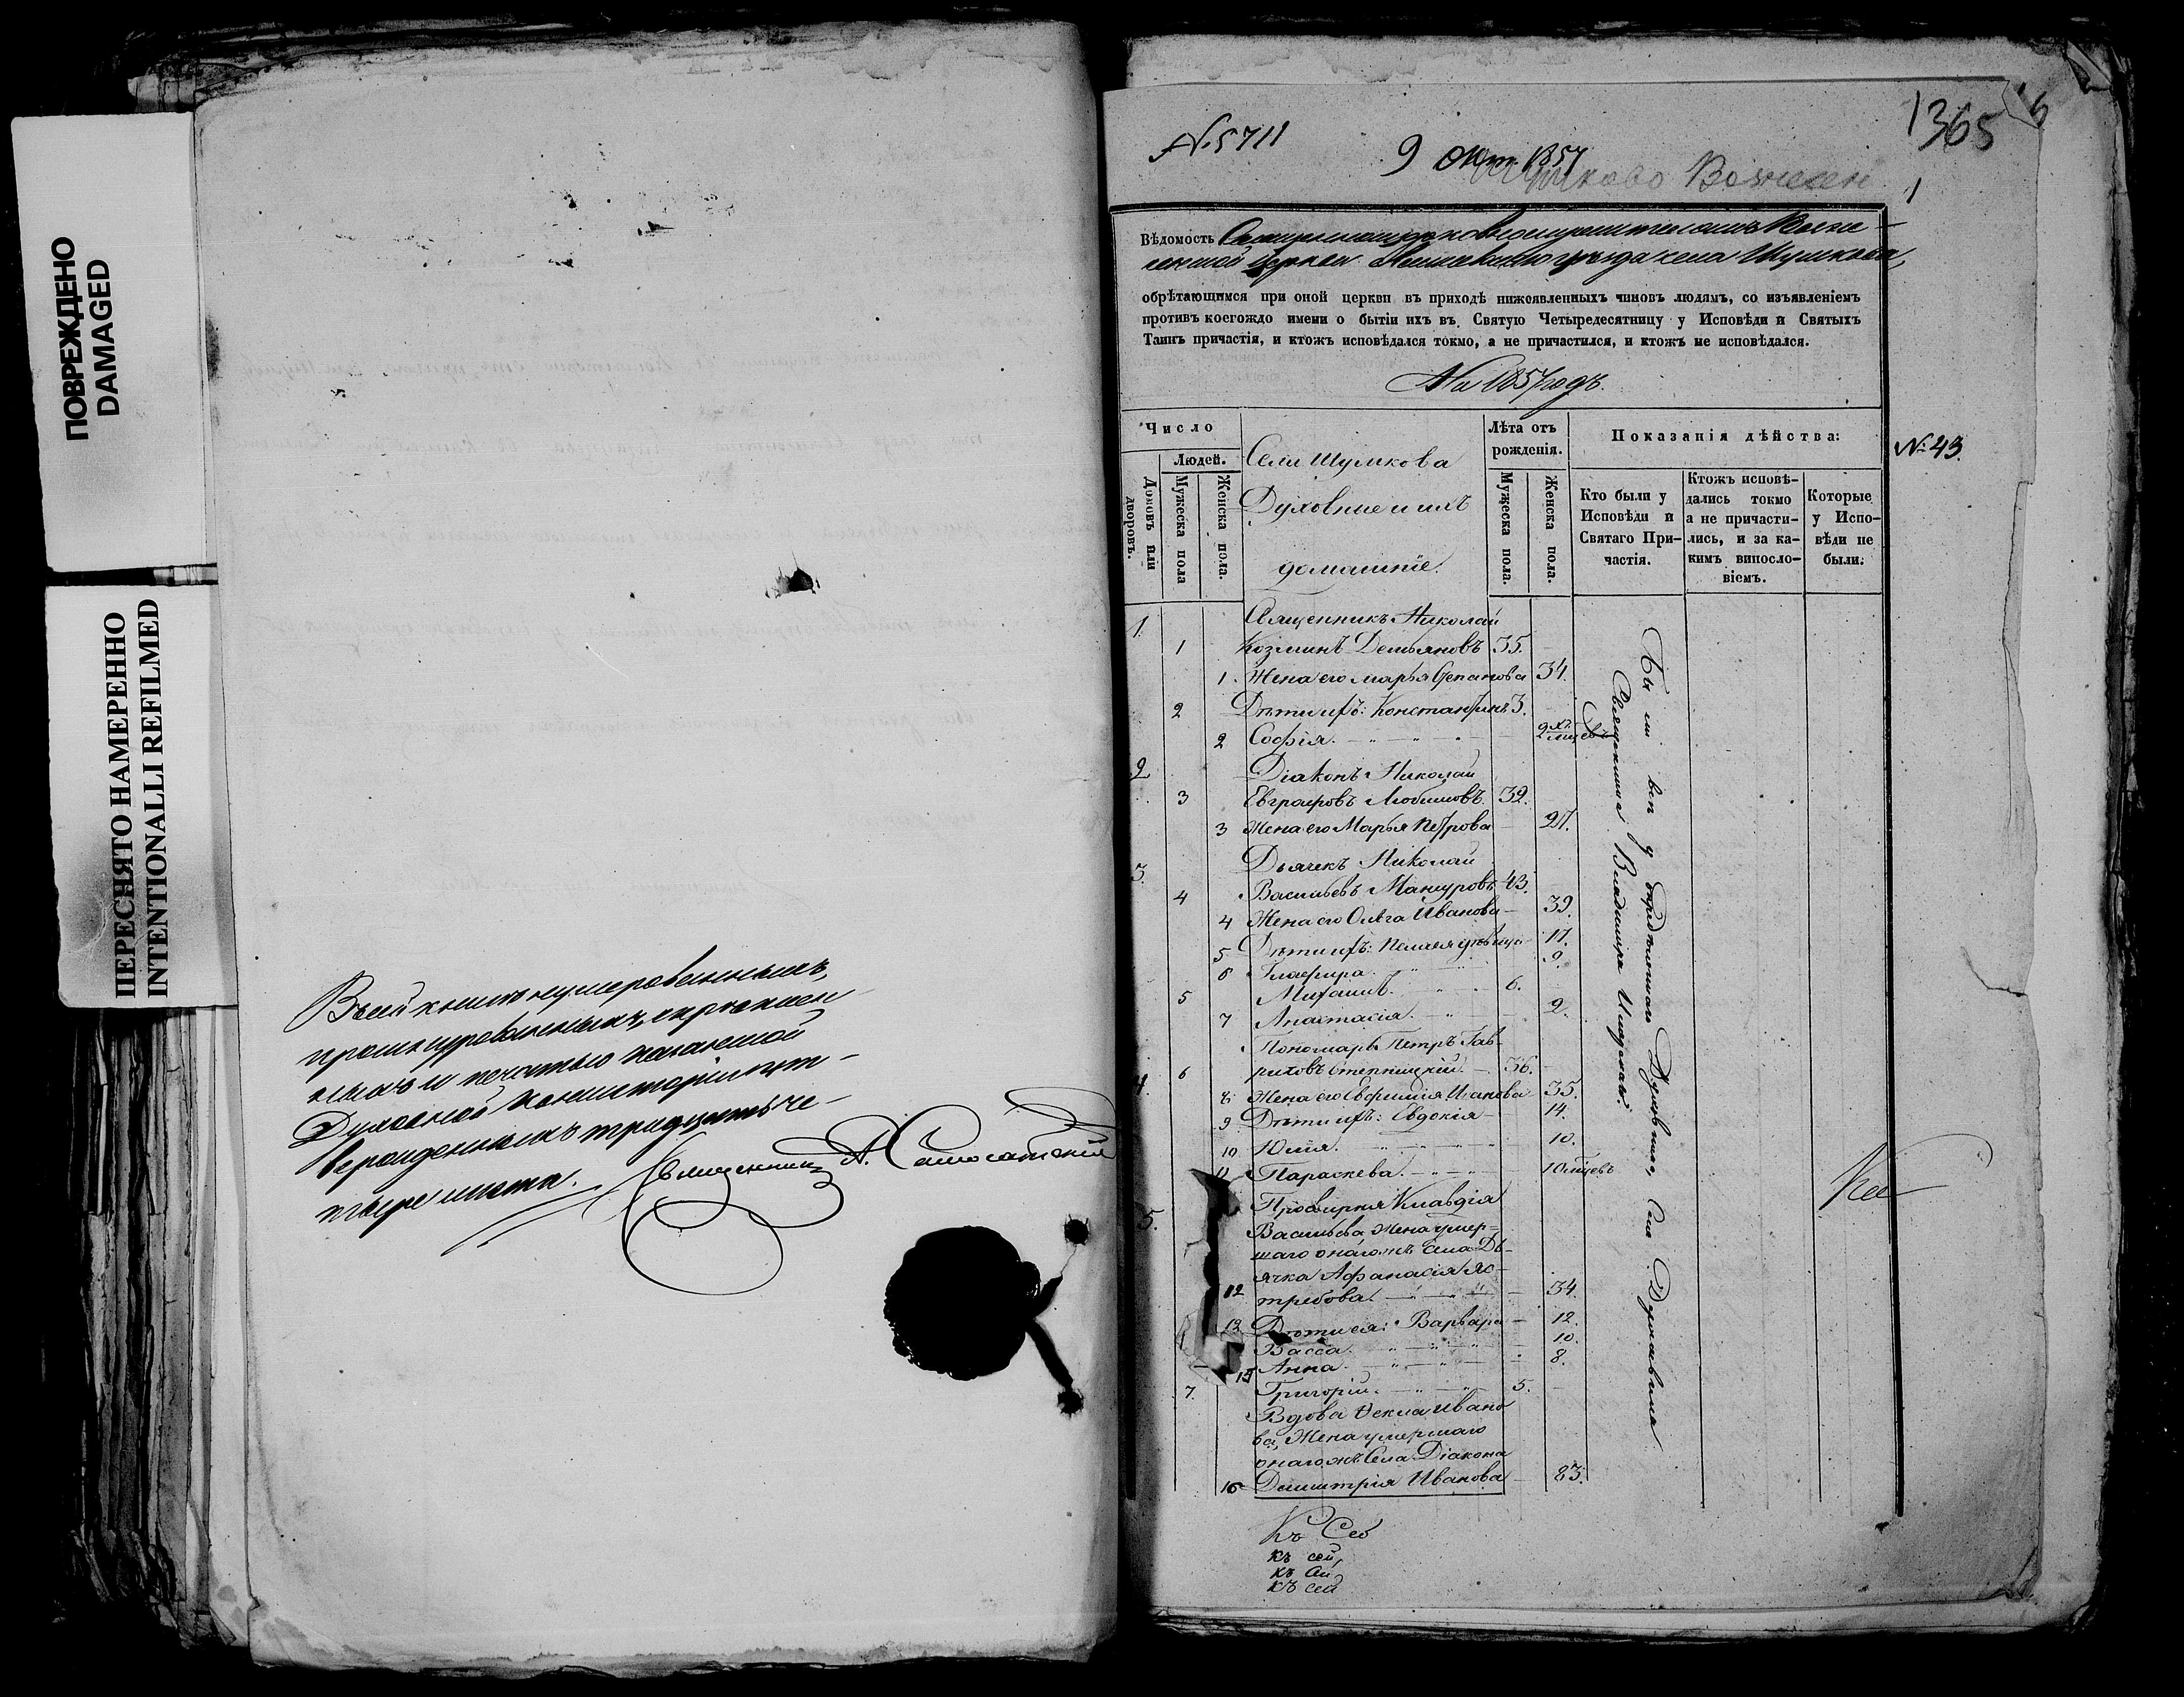 ПОВРЕЖДЕНО
DAMAGED
ПЕРЕСНЯТО НАМЕРЕННО
INTENTIONALLI REFILMED
Въ сей книге нумерованныхъ,
прошнурованныхъ, скрѣплен
ныхъ и печатью казанной
Духовной Консисторіи ут-
вержденныхъ тридцать че-
тыре листа.
Священникъ А. Самосатскій
№ 5711
9 Окт. 1857
1365
1
Вѣдомость
церкви уѣзда села Шумкова,
обрѣтающимся при оной церкви въ приходѣ нижеявленныхъ чиновъ людямъ, со изъявленіемъ
противъ коегождо имени о бытіи ихъ въ Святую Четыредесятницу у Исповѣди и Святыхъ
Таинъ причастія, и ктожъ исповѣдался токмо, а не причастился, и ктожъ не исповѣдался.
На 1857 годъ.
№ 43.
Число
Людей.
Домовъ или дворовъ.
Мужеска пола
Женска пола.
Села Шумкова
Духовные и ихъ
домашніе.
Лѣта отъ рожденія.
Мужеска пола.
Женска пола.
Показанія дѣйства:
Кто были у Исповѣди и Святаго При-частія.
Ктожъ исповѣ-дались токмо а не причасти-лись, и за ка-кимъ виносло-віемъ.
Которые у Испо-вѣди не были.
1. Священникъ Николай
1 Козминъ Демьяновъ 35.
1. Жена его Марья Степанова 34.
2 Дѣти ихъ: Константинъ 3.
2 Софія. 2
2 Діаконъ Николай
3 Евграфовъ Любимовъ 32.
3 Жена его Марья Петрова 27.
3. Дьячекъ Николай
4 Васильевъ Мансуровъ 43.
4 Жена его Ольга Иванова 39.
5 Дѣти ихъ: Пелагея 17.
6 Глафира. 9.
5 Михаилъ. 6.
7 Анастасія. 2.
Пономарь Петръ Гав-
4. 6 36.
8 Жена его Евфимія Иванова 35.
9 Дѣти ихъ: Евдокія 14.
10 Юлія. 10.
11 Параскева. 10 мѣсяцевъ
5. Просвирня Клавдія
Васильева, Жена умер-
шаго онагожъ села Дь-
ячка Афанасія Яс-
12 требова. 34.
13 Дѣти ея: Варвара 12.
Васса. 10.
15 Анна. 8.
7. Григорій. 5.
Вдова Фекла Ивано
ва, Жена умершаго
онагожъ Села Діакона
16 Димитрія Иванова 83.
Были всѣ у
Священника Владимира
Къ Сей
къ сей,
къ сей
къ сей